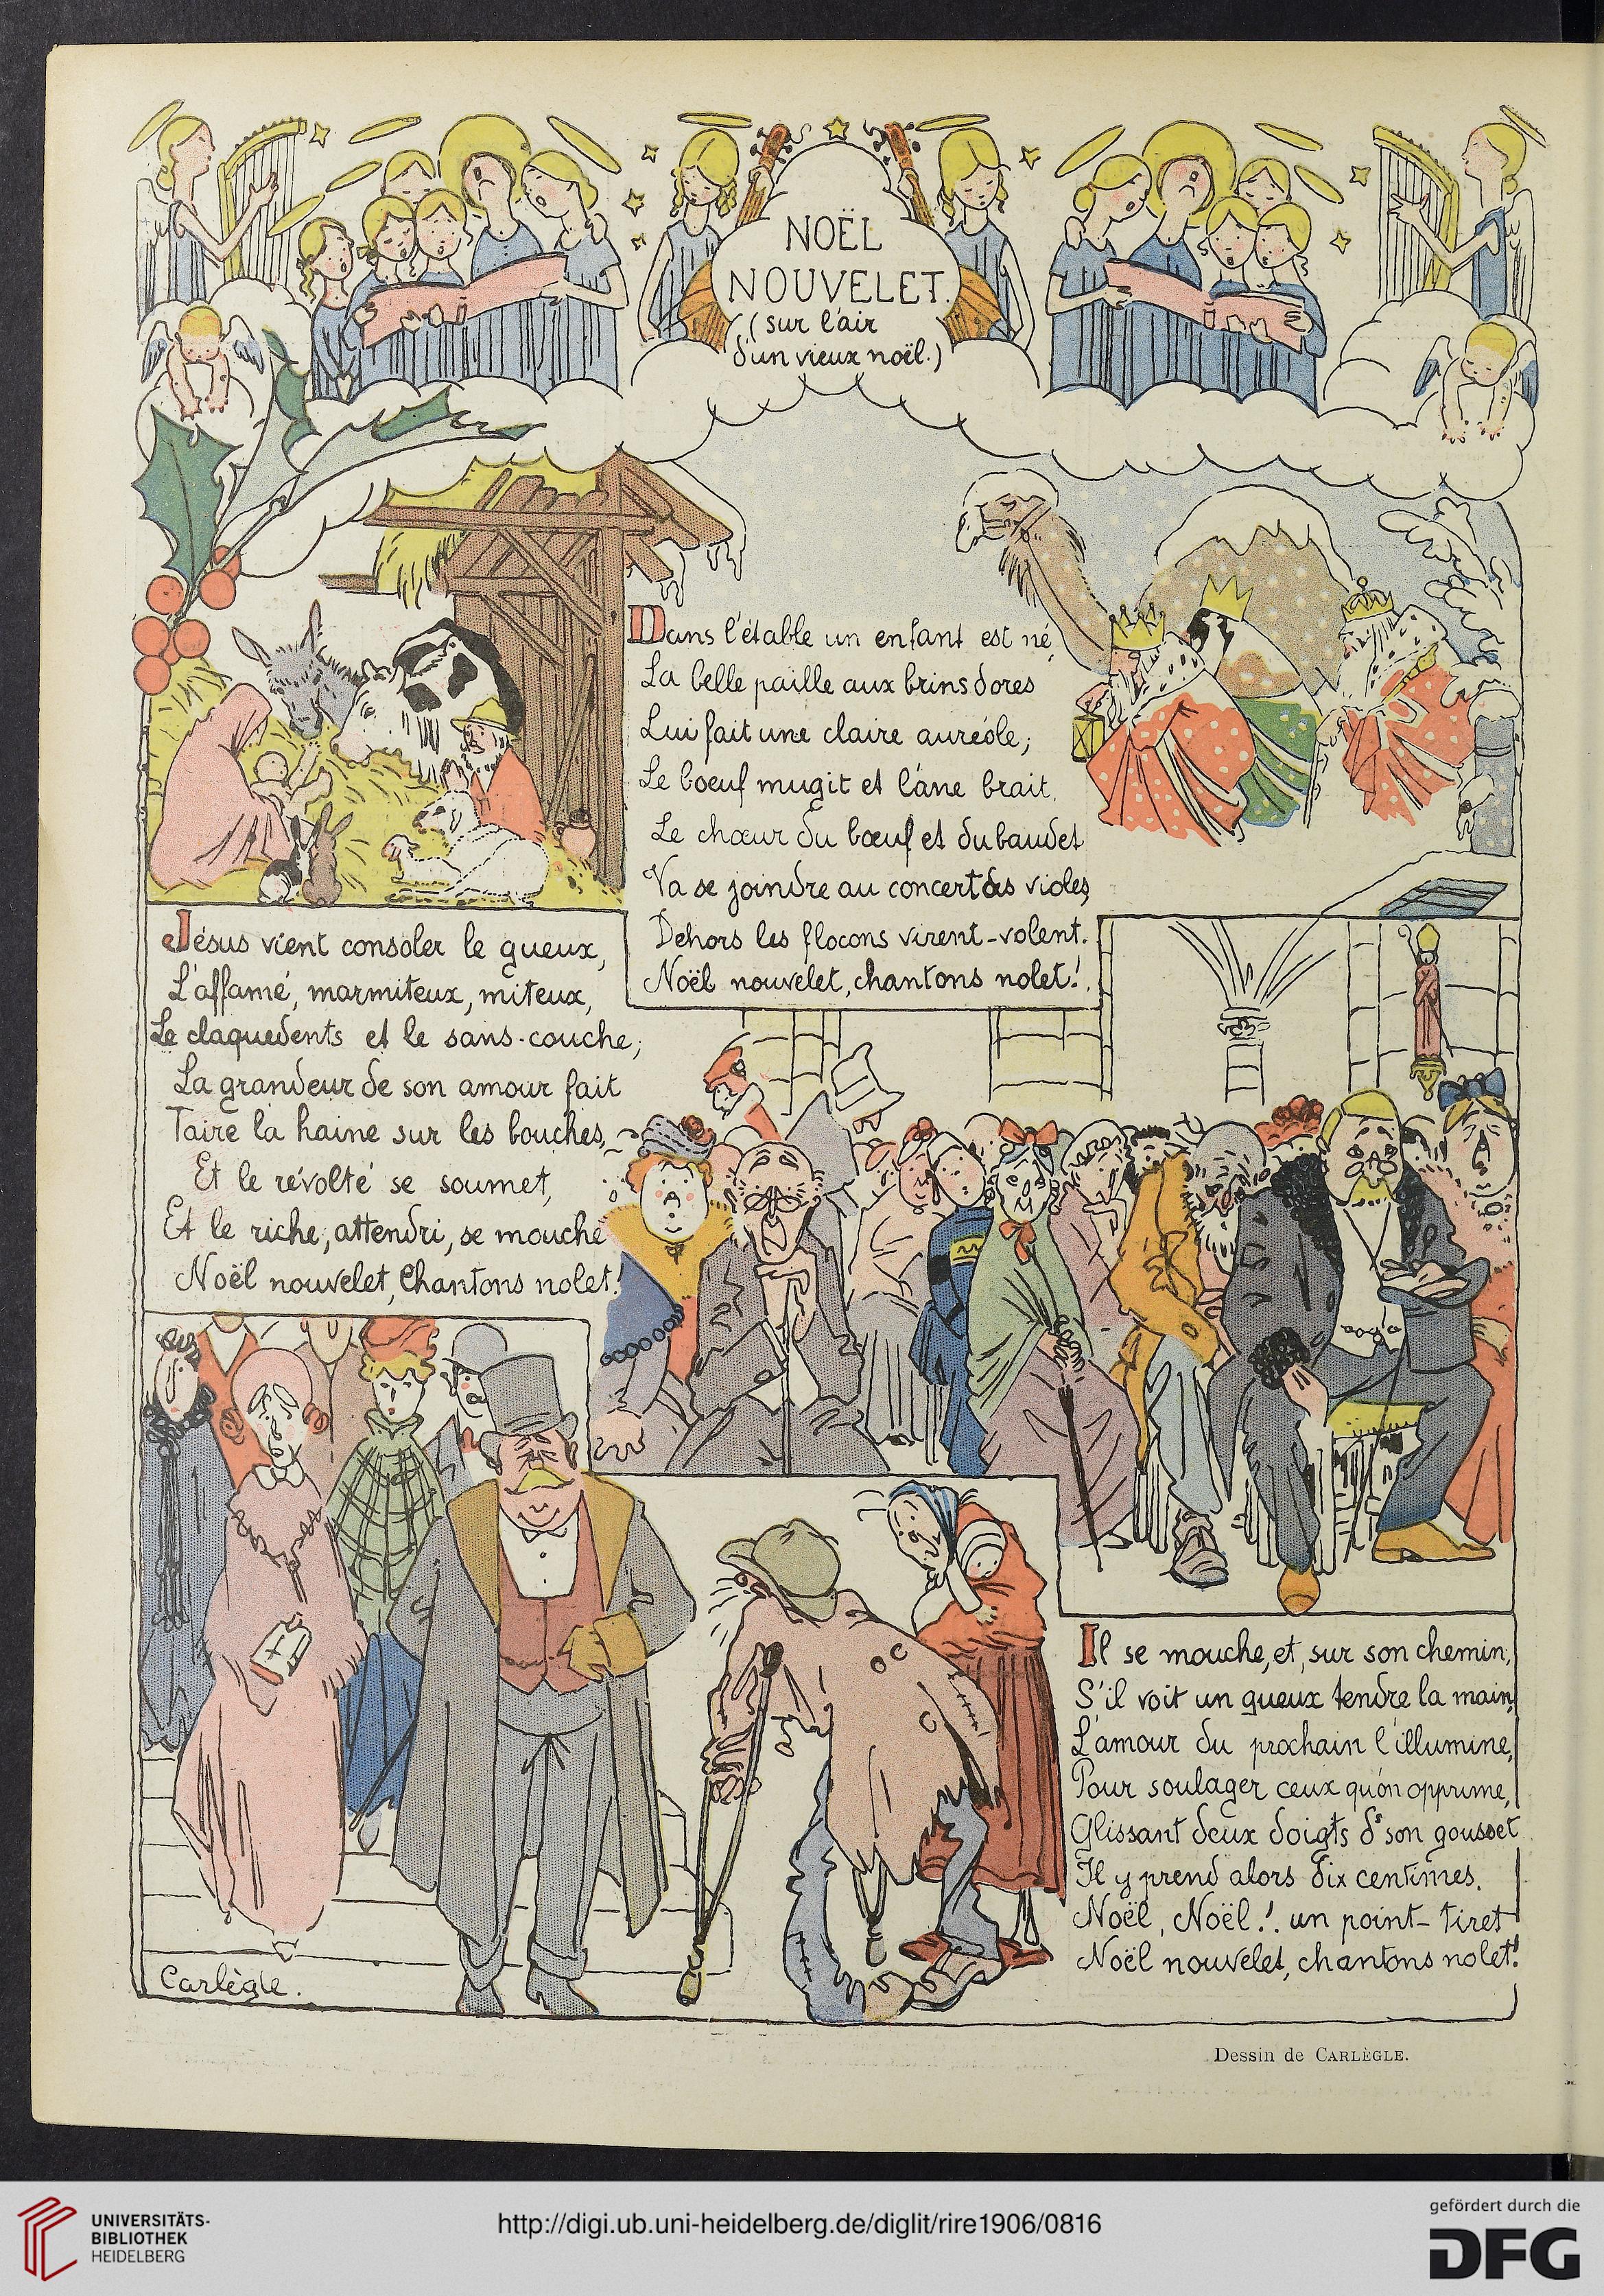 NOËL
NOUVELET.
(sur l'air
d'un vieux noël.)
Dans l'étable un enfant est né,
La belle paille aux brins dores
Lui fait une claire auréole;
Le bœuf mugit et l'âne brait.
Le chœur du bœuf et du baudet
Va se joindre au concert des violes,
Dehors les flocons virent-volent.
Noël nouvelet, chantons nolet!
Jésus vient consoler le gueux,
L'affamé, marmiteux, miteux,
Le claquedents et le sans-couche;
La grandeur de son amour fait
Taire la haine sur les bouches,
Et le révolté se soumet,
Et le riche, attendri, se mouche
Noël nouvelet, Chantons nolet!
Il se mouche, et, sur son chemin,
S'il voit un gueux tendre la main,
L'amour du prochain l'illumine,
Pour soulager ceux qu'on opprime,
Glissant deux doigts ds son gousset
Il y prend alors dix centimes.
Noël, Noël!. un point-tiret
Noël nouvelet, chantons nolet!
Carlègle.
Dessin de CARLÈGLE.
UNIVERSITÄTS-
BIBLIOTHEK
HEIDELBERG
http://digi.ub.uni-heidelberg.de/diglit/rire1906/0816
gefördert durch die
DFG